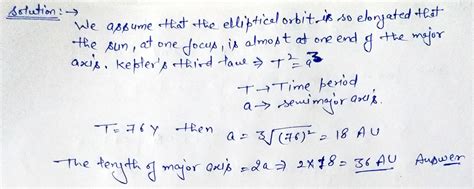 Solution:→
We assume that the elliptical orbit is so elongated that
the sun, at one focus, is almost at one end of the major
axis. Kepler's third law ⇒ T² = a³
T → Time period
a → semimajor axis.
T = 76 Y then a = ∛(76)² = 18 AU
The length of major axis = 2a ⇒ 2×18 = 36 AU Answer